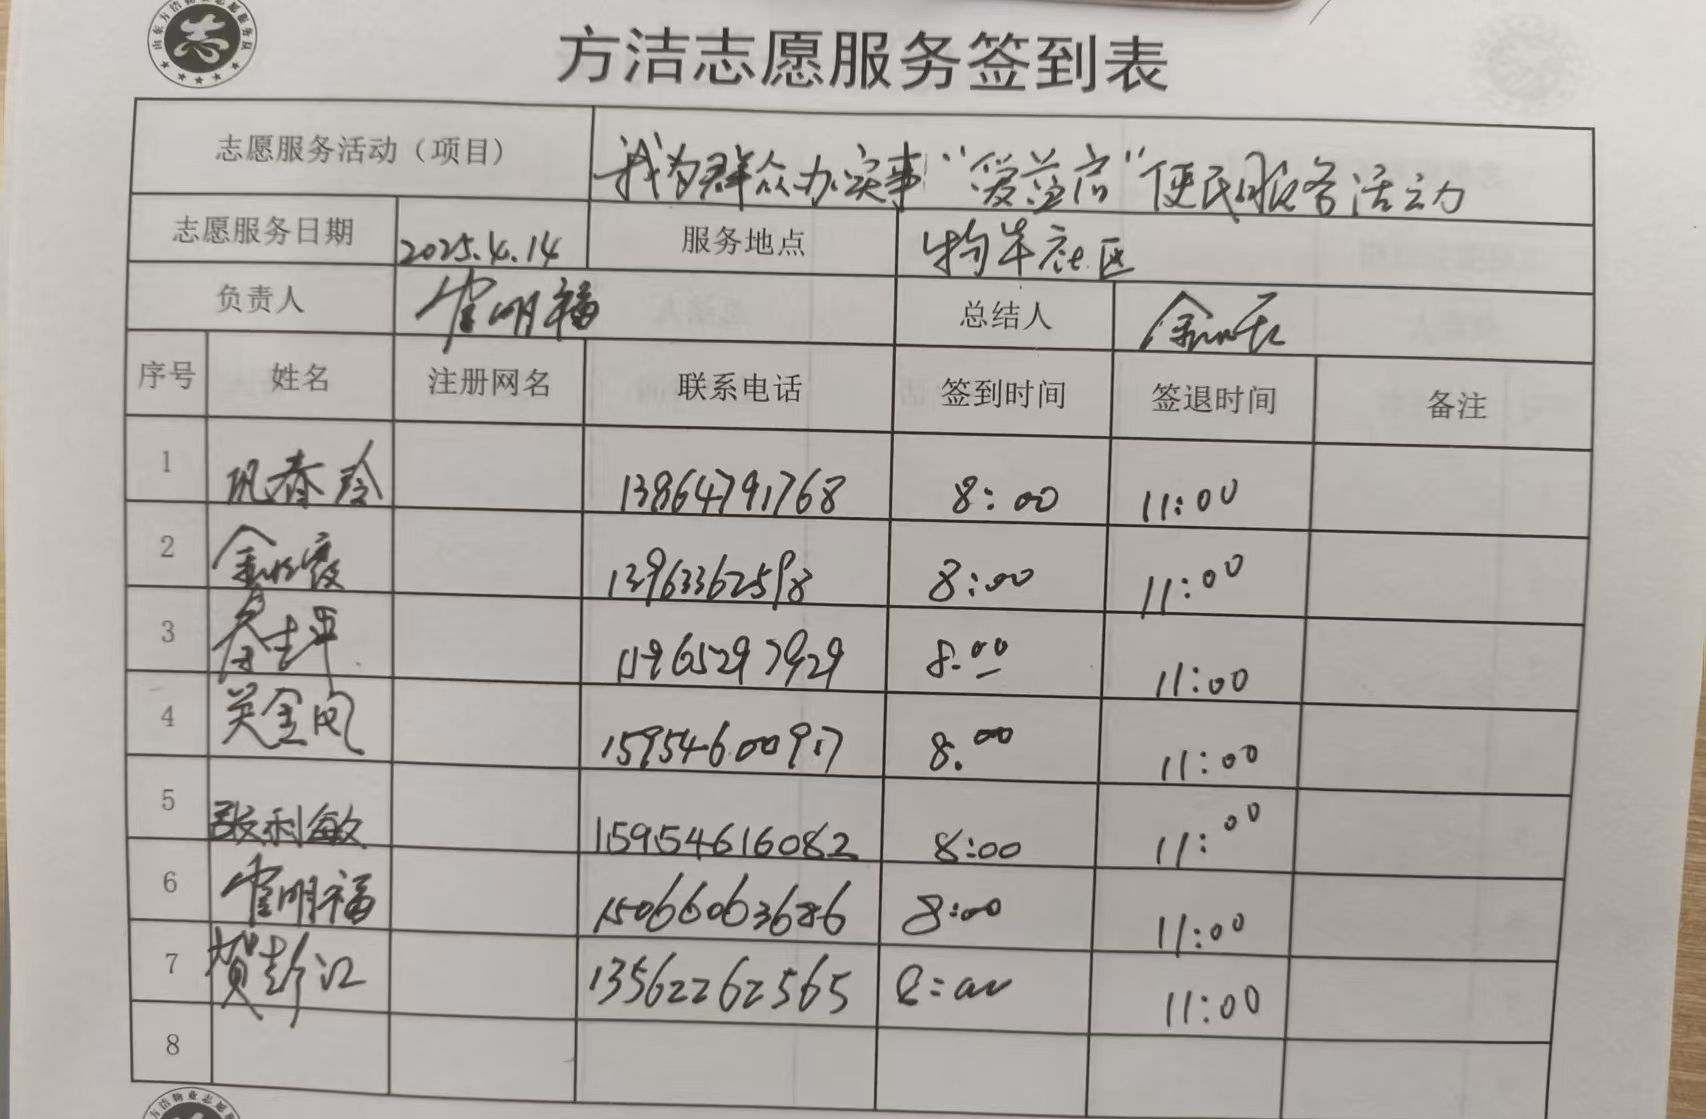 山东方洁物业志愿服务队
志
方洁志愿服务签到表
志愿服务活动（项目） 我为群众办实事“爱益启”便民服务活动
志愿服务日期 2025.4.14 服务地点 牛社区
负责人 崔明福 总结人 金
序号 姓名 注册网名 联系电话 签到时间 签退时间 备注
1 巩春玲 13864791768 8:00 11:00
2 金霞 13963362598 8:00 11:00
3 15965297929 8.00 11:00
4 英金凤 15954600917 8.00 11:00
5 张利敏 15954616082 8:00 11:00
6 崔明福 15066063686 8:00 11:00
7 贺彭江 13562262565 8:00 11:00
8
方洁物业志愿服